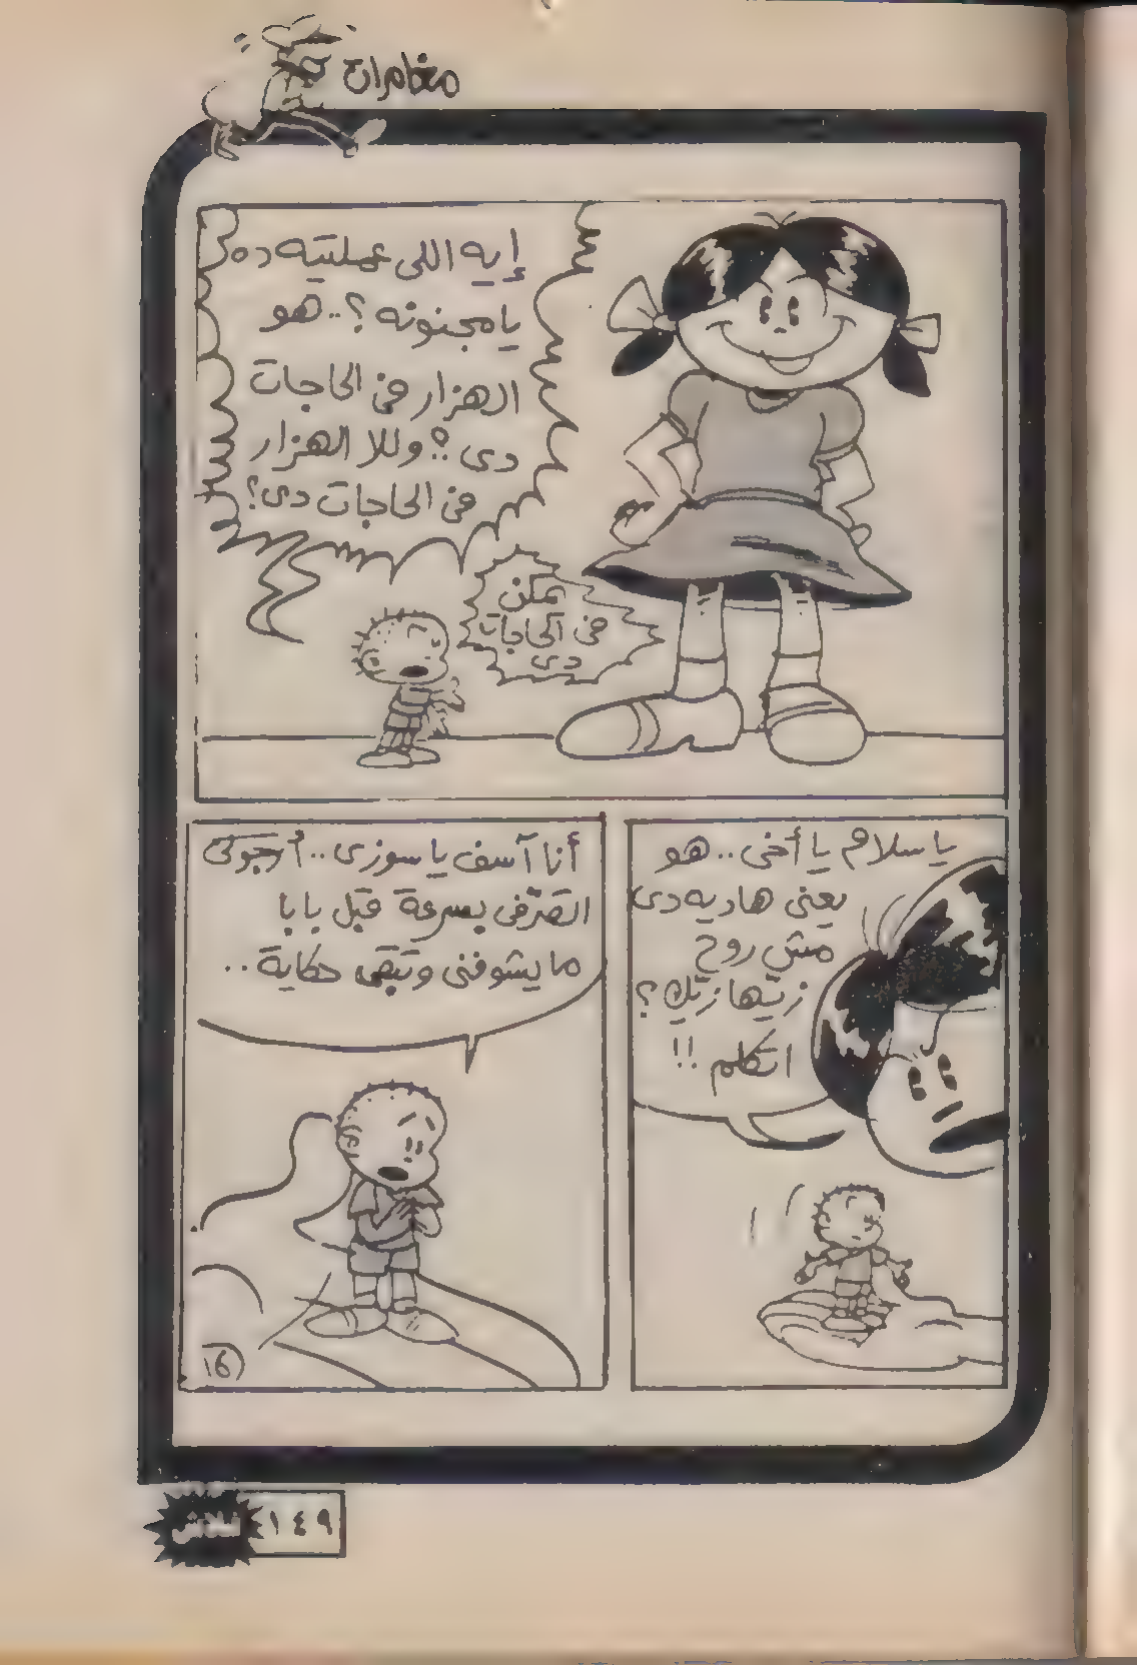 مغامرات
إيه اللى عملتيه ده
يا مجنونه ؟.. هو
الهزار فى الحاجات
دى ؟! وللا الهزار
فى الحاجات دى ؟
ممكن
فى الحاجات
دى
يا سلام يا أخى .. هو
يعنى هاديه دى
مش روح
زيها زيك ؟
اتكلم !!
أنا آسف يا سوزى .. أرجوكى
اتصرفى بسرعة قبل بابا
ما يشوفنى وتبقى حكاية ..
16
فلاش ١٤٩